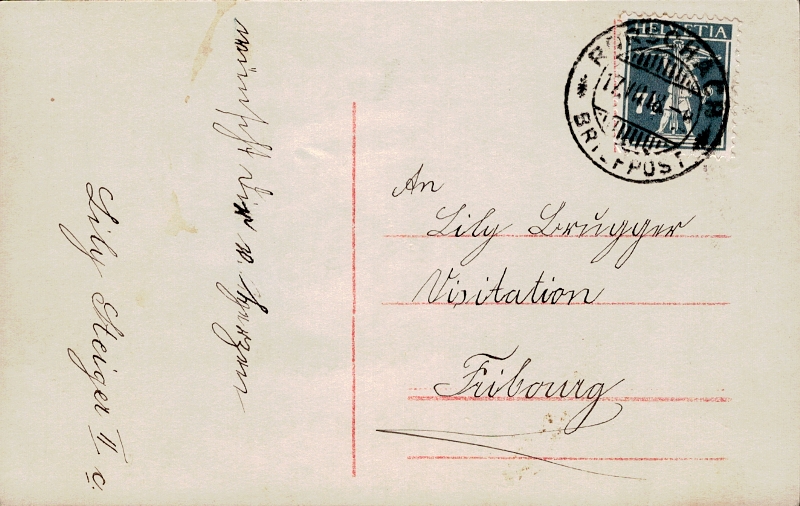 wünscht Dir v Herzen
Lily Steiger II c.
HELVETIA
RORSCHACH
BRIEFPOST
An
Lily Brugger
Visitation
Fribourg